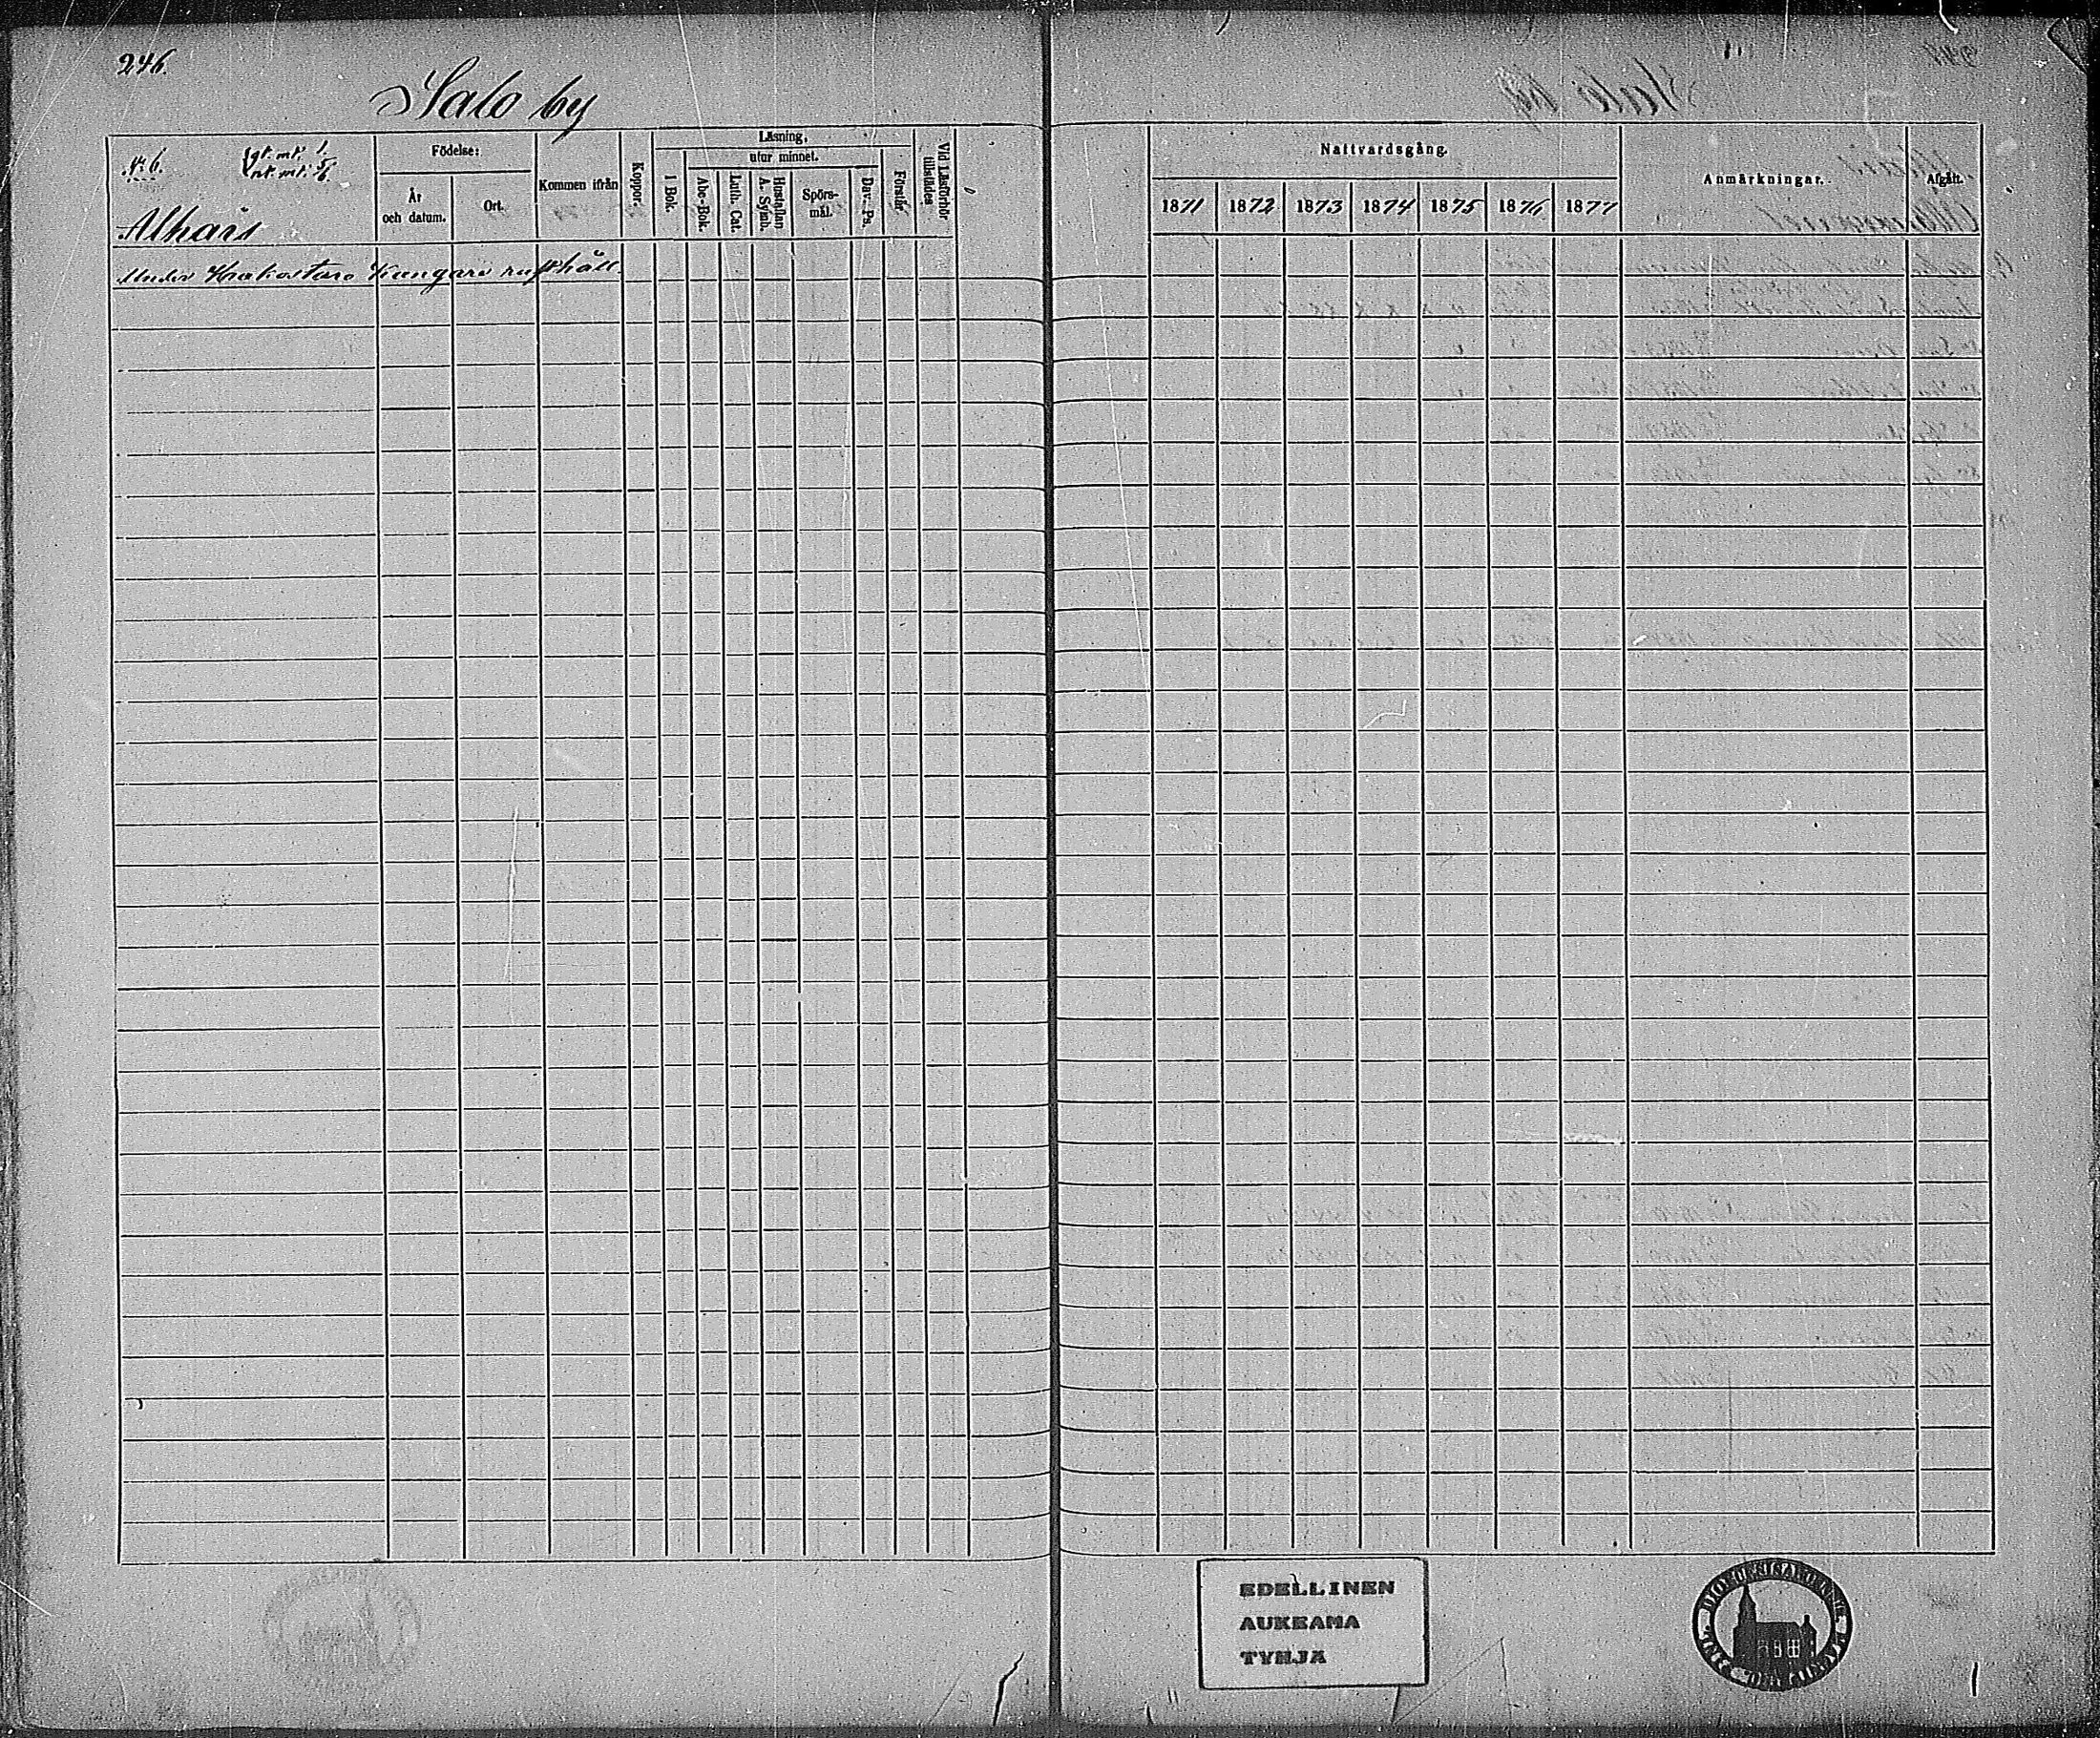 246.
Salo by
No 6.
gt. mt. 1.
nt mt. 5/6
Alhais
Under Krakostaro Kungare rusthåll.
Födelse:
År
och datum.
Ort.
Kommen ifrån
Koppor.
Läsning,
utur minnet.
I Bok.
Abc-Bok.
Luth. Cat.
Hustaflan
A. Symb.
Spörs-
mål.
Dav. Ps.
Förstår
Vid Läsförhör
tillstädes
Nattvardsgång.
1871 1872 1873 1874 1875 1876 1877
Anmärkningar.
Afgått.
EDELLINEN
AUKEAMA
TYHJÄ